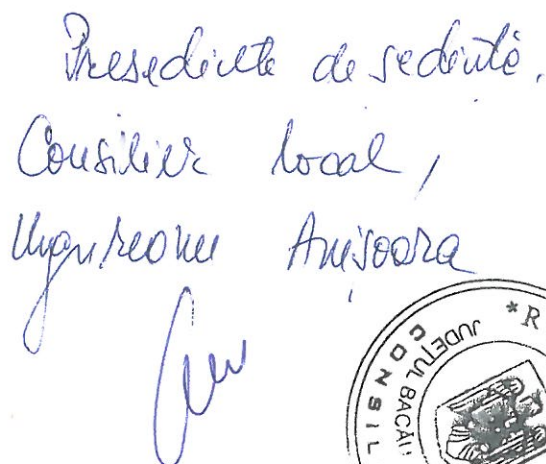 Președinte de sedintă.
Consilier local,
Ungureanu Anișoara
*R
JUDEȚUL BACĂU
CONSIL